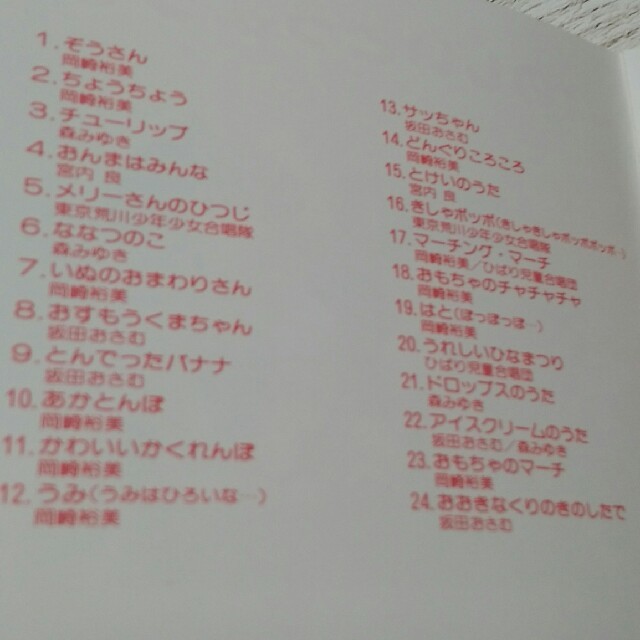 1. ぞうさん
岡崎裕美
2. ちょうちょう
岡崎裕美
3. チューリップ
森みゆき
4. おんまはみんな
宮内 良
5. メリーさんのひつじ
東京荒川少年少女合唱隊
6. ななつのこ
森みゆき
7. いぬのおまわりさん
岡崎裕美
8. おすもうくまちゃん
坂田おさむ
9. とんでったバナナ
坂田おさむ
10. あかとんぼ
岡崎裕美
11. かわいいかくれんぼ
岡崎裕美
12. うみ(うみはひろいな…)
岡崎裕美
13. サッちゃん
坂田おさむ
14. どんぐりころころ
岡崎裕美
15. とけいのうた
宮内 良
16. きしゃポッポ(きしゃきしゃポッポポッポ…)
東京荒川少年少女合唱隊
17. マーチング・マーチ
岡崎裕美/ひばり児童合唱団
18. おもちゃのチャチャチャ
岡崎裕美
19. はと(ぽっぽっぽ…)
岡崎裕美
20. うれしいひなまつり
ひばり児童合唱団
21. ドロップスのうた
森みゆき
22. アイスクリームのうた
坂田おさむ/森みゆき
23. おもちゃのマーチ
岡崎裕美
24. おおきなくりのきのしたで
坂田おさむ